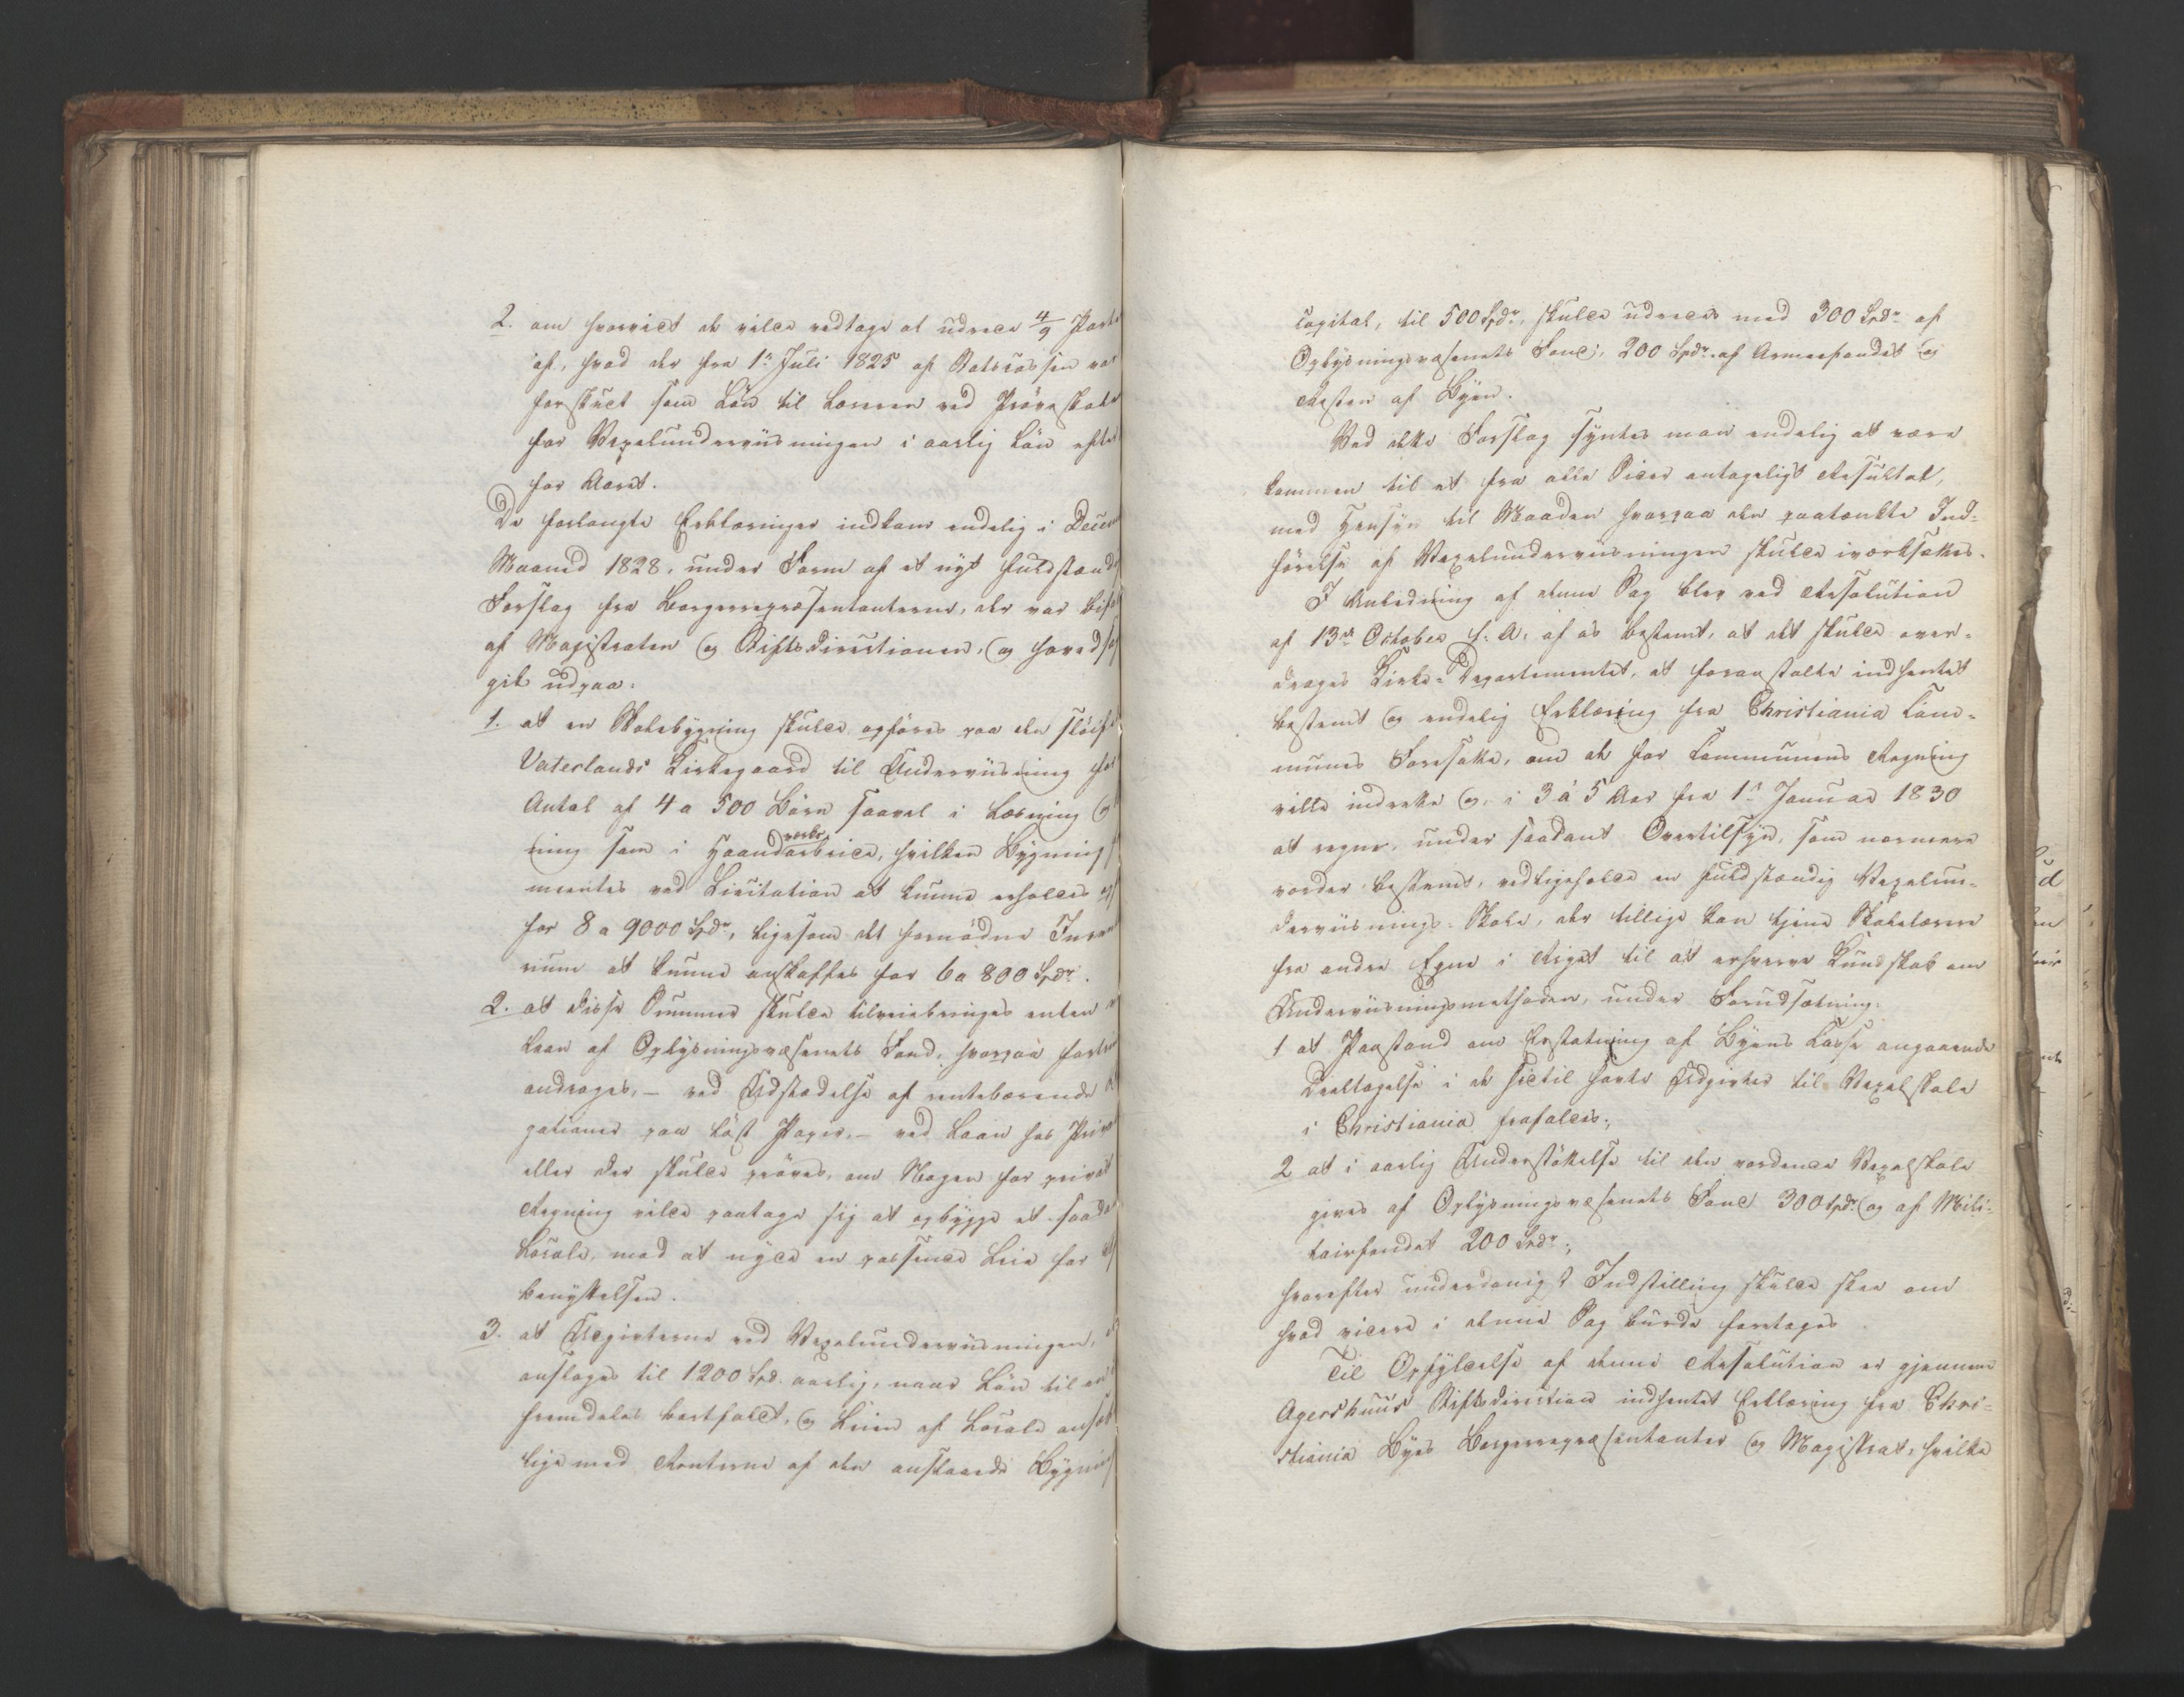 2. om hvorvidt de vilde vedtage at udrede 4/9 Parte
af, hvad der fra 1ste Juli 1825 af Statscassen var
forskudt som Løn til Læreren ved Prøveskolen
for Vexelunderviisningen i aarlig Løn
for Aaret.
De forlangte Erklæringer indkom endelig i Decem
Maaned 1828, under Form af et nyt fuldstændi
Forslag fra Borgerrepræsentanterne, der var
af Magistraten og Stiftsdirectionen, og
gik udpaa:
1. at en Skolebygning skulde opføres paa den sløif
Vaterlands Kirkegaard til Underviisning for
Antal af 4 a 500 Børn saavel i Læsning
ning som i Haandarbeide, hvilken Bygning
meentes ved Licitation at kunne erholdes
for 8 a 9000 Spdr, ligesom det fornødne Inven
rium at kunne anskaffes for 6 a 800 Spdr.
2. at disse Summer skulde tilveiebringes enten
Laan af Oplysningsvæsenets Fond, hvorpaa
androges, – ved Udstædelse af rentebærende
gationer paa løst Papir, – ved Laan hos Priva
eller der skulde prøves, om Nogen for privat
Regning vilde paatage sig at opbygge et saada
Locale, mod at nyde en passende Leie for
benyttelsen.
3. at Udgivterne ved Vexelunderviisningen,
ansloges til 1200 Spd. aarlig, naar Løn til
fremdeles bortfaldt, og Leien af Locale
lige med Renterne af den anslaaede Bygnin
capital, til 500 Spdr, skulde udredes med 300 Spdr af
Oplysningsvæsenets Fond; 200 Spdr. af Armeefondet og
Resten af Byen.
Ved dette Forslag syntes man endelig at være
kommen til et fra alle Sider antageligt Resultat,
med Hensyn til Maaden hvorpaa den paatænkte Ind-
førelse af Vexelunderviisningen skulde iværksættes.
I Anledning af denne Sag blev ved Resolution
af 13de October f. A. af os bestemt, at det skulde over-
drages Kirke-Departementet, at foranstalte indhentet
bestemt og endelig Erklæring fra Christiania Com-
munes Foresatte, om de for Communens Regning
ville indrette og, i 3 à 5 Aar fra 1ste Januar 1830
at regne, under saadant Overtilsyn, som nærmere
vorder bestemt, vedligeholde en fuldstændig Vexelun-
derviisnings-Skole, der tillige kan tjene Skolelærere
fra andre Egne i Riget til at erhverve Kundskab om
Underviisningsmethoden, under Forudsætning:
1 at Paastand om Erstatning af Byens Casse angaaende
Deeltagelse i de hidtil havte Udgivter til Vexelskole
i Christiania frafaldes;
2 at i aarlig Understøttelse til den vordende Vexelskole
gives af Oplysningsvæsenets Fond 300 Spdr. og af Mili-
tairfondet 200 Spdr;
hvorefter underdanigst Indstilling skulde skee om
hvad videre i denne Sag burde foretages.
Til Opfyldelse af denne Resolution er gjennem
Agershuus Stiftsdirection indhentet Erklæring fra Chri-
stiania Byes Borgerrepræsentanter og Magistrat, hvilke